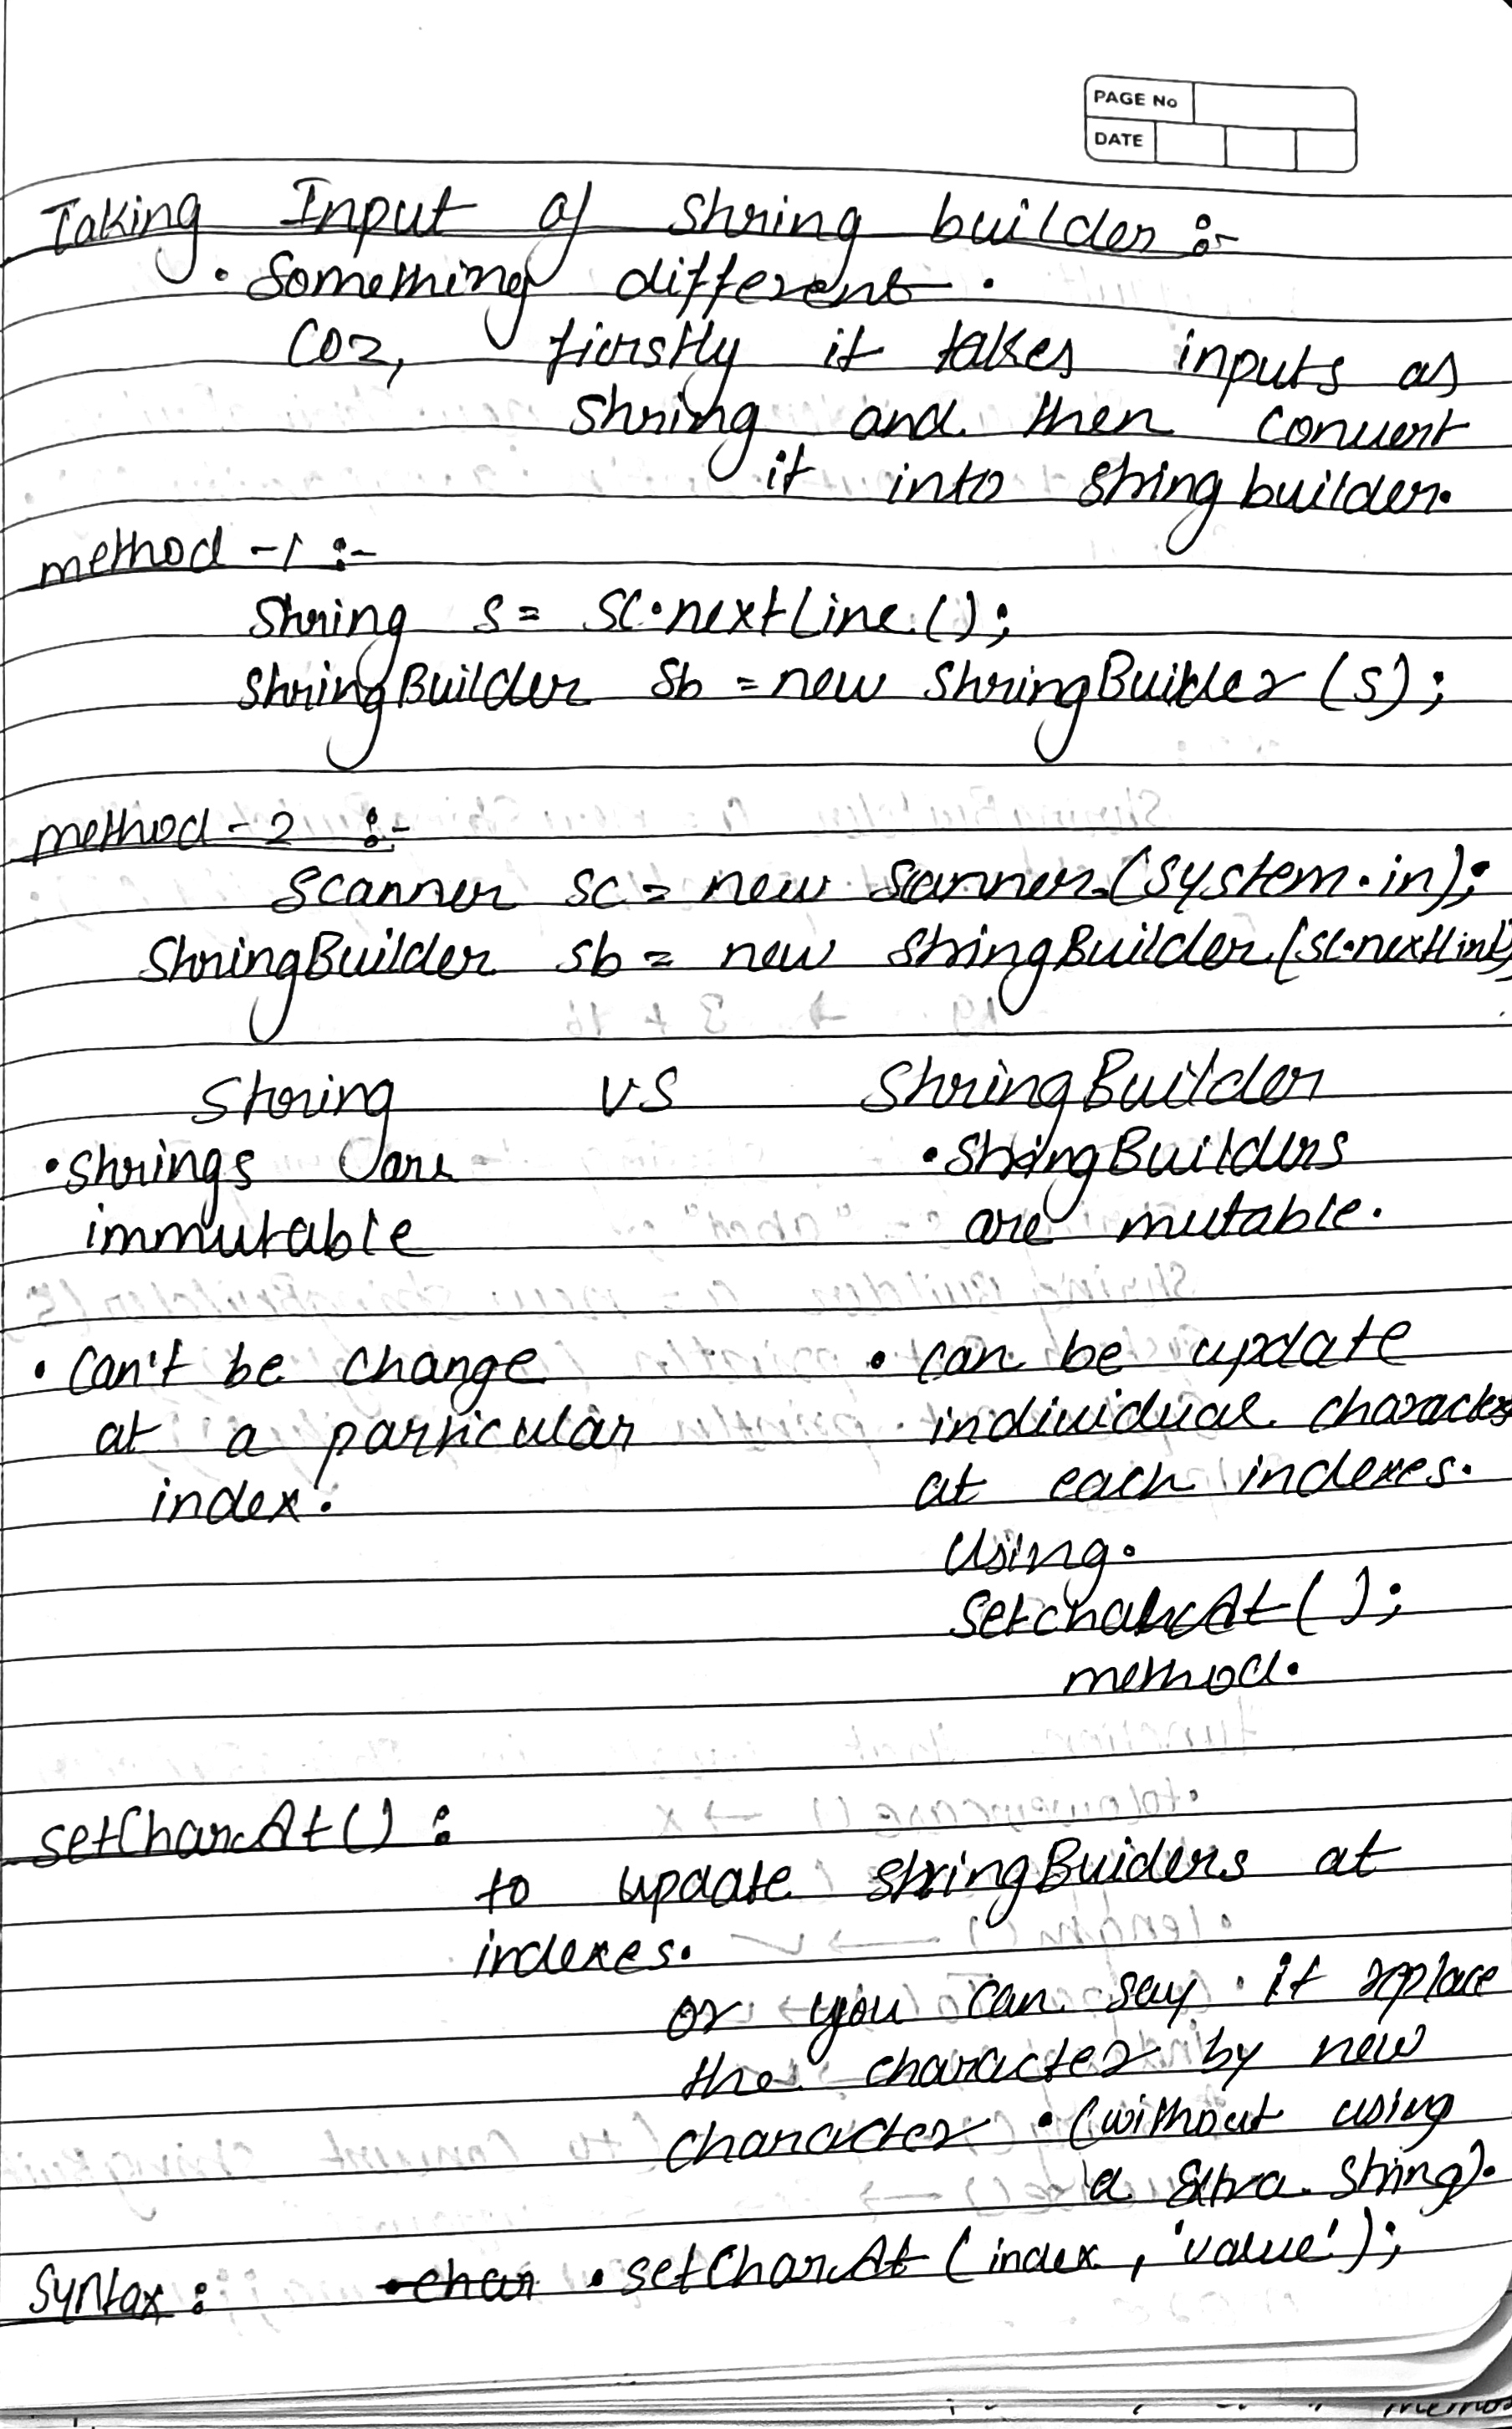 PAGE No
DATE
Taking Input of String builder :-
• Something different.
Coz, firstly it takes inputs as
String and then convert
it into string builder.
method -1 :-
String s = sc.nextLine();
StringBuilder sb = new StringBuilder (s);
method - 2 :-
Scanner sc = new Scanner (System.in);
StringBuilder sb = new StringBuilder (sc.nextLine
String vs StringBuilder
• Strings are • StringBuilders
immutable are mutable.
• Can't be change • can be update
at a particular individual character
index. at each indexes.
Using.
SetcharAt ( );
method.
setCharAt() :
to update stringBuiders at
indexes.
or you can say. it replace
the character by new
character. (without using
a Extra String).
Syntax : .setCharAt (index, 'value');